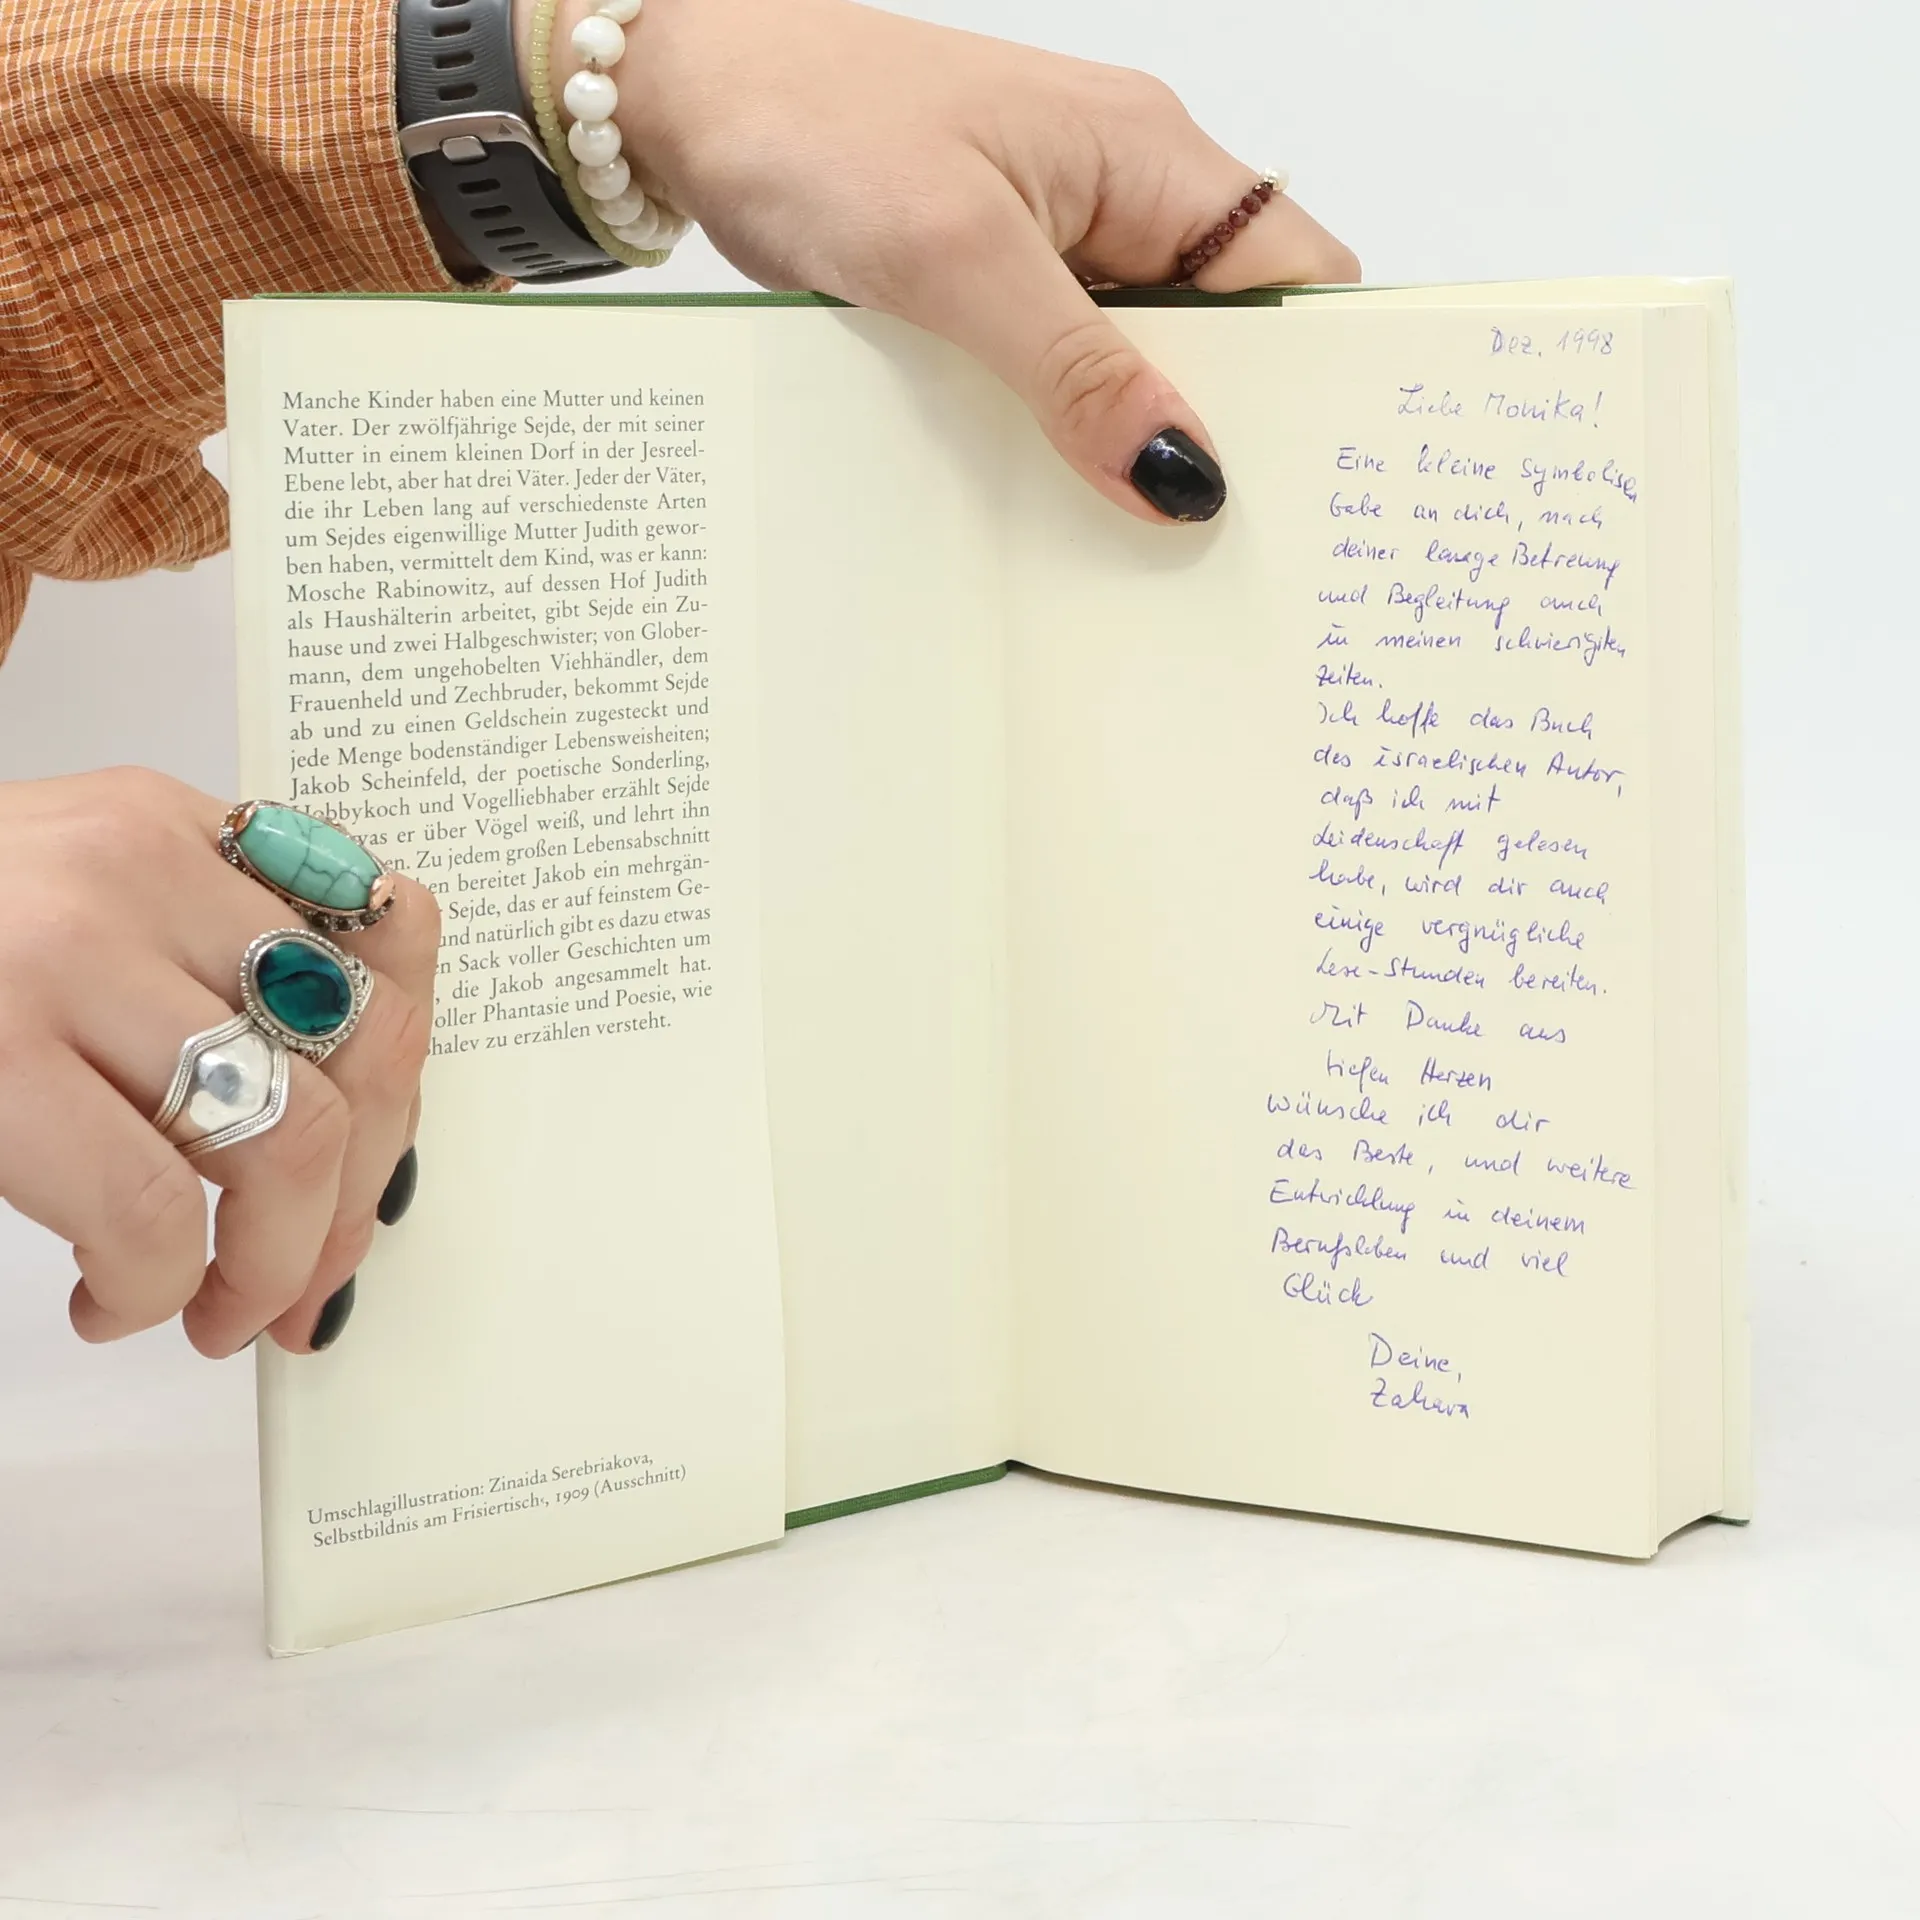 Manche Kinder haben eine Mutter und keinen
Vater. Der zwölfjährige Sejde, der mit seiner
Mutter in einem kleinen Dorf in der Jesreel-
Ebene lebt, aber hat drei Väter. Jeder der Väter,
die ihr Leben lang auf verschiedenste Arten
um Sejdes eigenwillige Mutter Judith gewor-
ben haben, vermittelt dem Kind, was er kann:
Mosche Rabinowitz, auf dessen Hof Judith
als Haushälterin arbeitet, gibt Sejde ein Zu-
hause und zwei Halbgeschwister; von Glober-
mann, dem ungehobelten Viehhändler, dem
Frauenheld und Zechbruder, bekommt Sejde
ab und zu einen Geldschein zugesteckt und
jede Menge bodenständiger Lebensweisheiten;
Jakob Scheinfeld, der poetische Sonderling,
Hobbykoch und Vogelliebhaber erzählt Sejde
was er über Vögel weiß, und lehrt ihn
en. Zu jedem großen Lebensabschnitt
en bereitet Jakob ein mehrgän-
Sejde, das er auf feinstem Ge-
und natürlich gibt es dazu etwas
n Sack voller Geschichten um
, die Jakob angesammelt hat.
oller Phantasie und Poesie, wie
halev zu erzählen versteht.
Umschlagillustration: Zinaida Serebriakova,
Selbstbildnis am Frisiertisch‹, 1909 (Ausschnitt)
Dez. 1998
Liebe Monika!
Eine kleine Symbolisch
Gabe an dich, nach
deiner lange Betreung
und Begleitung auch
in meinen schwierigiten
Zeiten.
Ich hoffe das Buch
des israelischen Autor,
daß ich mit
Leidenschaft gelesen
habe, wird dir auch
einige vergnügliche
Lese-Stunden bereiten.
Mit Danke aus
tiefen Herzen
wünsche ich dir
das Beste, und weitere
Entwicklung in deinem
Berufsleben und viel
Glück
Deine,
Zahava